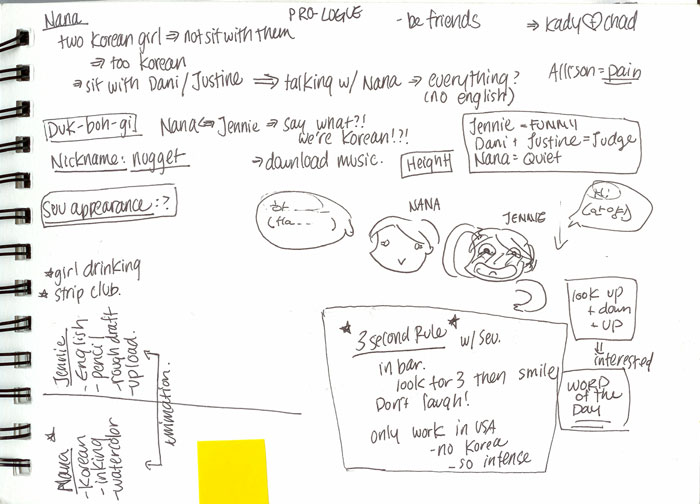 Nana
PRO-LOGUE
- be friends
⇒ Kady♡chad
two Korean girl ⇒ not sit with them
⇒ too Korean
⇒ sit with Dani/Justine ⇒ talking w/ Nana → everything?
(no english)
Allison = pain
Duk-boh-gi
Nana ↔ Jennie ⇒ say what?!
we're Korean!?!
Nickname: nugget
→ download music.
Height
Jennie = FUNNY
Dani + Justine = Judge
Nana = Quiet
Sew appearance: ?
NANA
JENNIE
Hi
* girl drinking
* strip club.
look up
+ down
+ up
⇓ interested
WORD
of the
Day
* 3 second Rule * w/ Sew.
in bar.
look for 3 then smile
Don't laugh!
only work in USA
- no Korea
- so intense
Jennie
- English
- pencil
- rough draft
- upload.
animation.
* Nana
- Korean
- inking
- watercolor